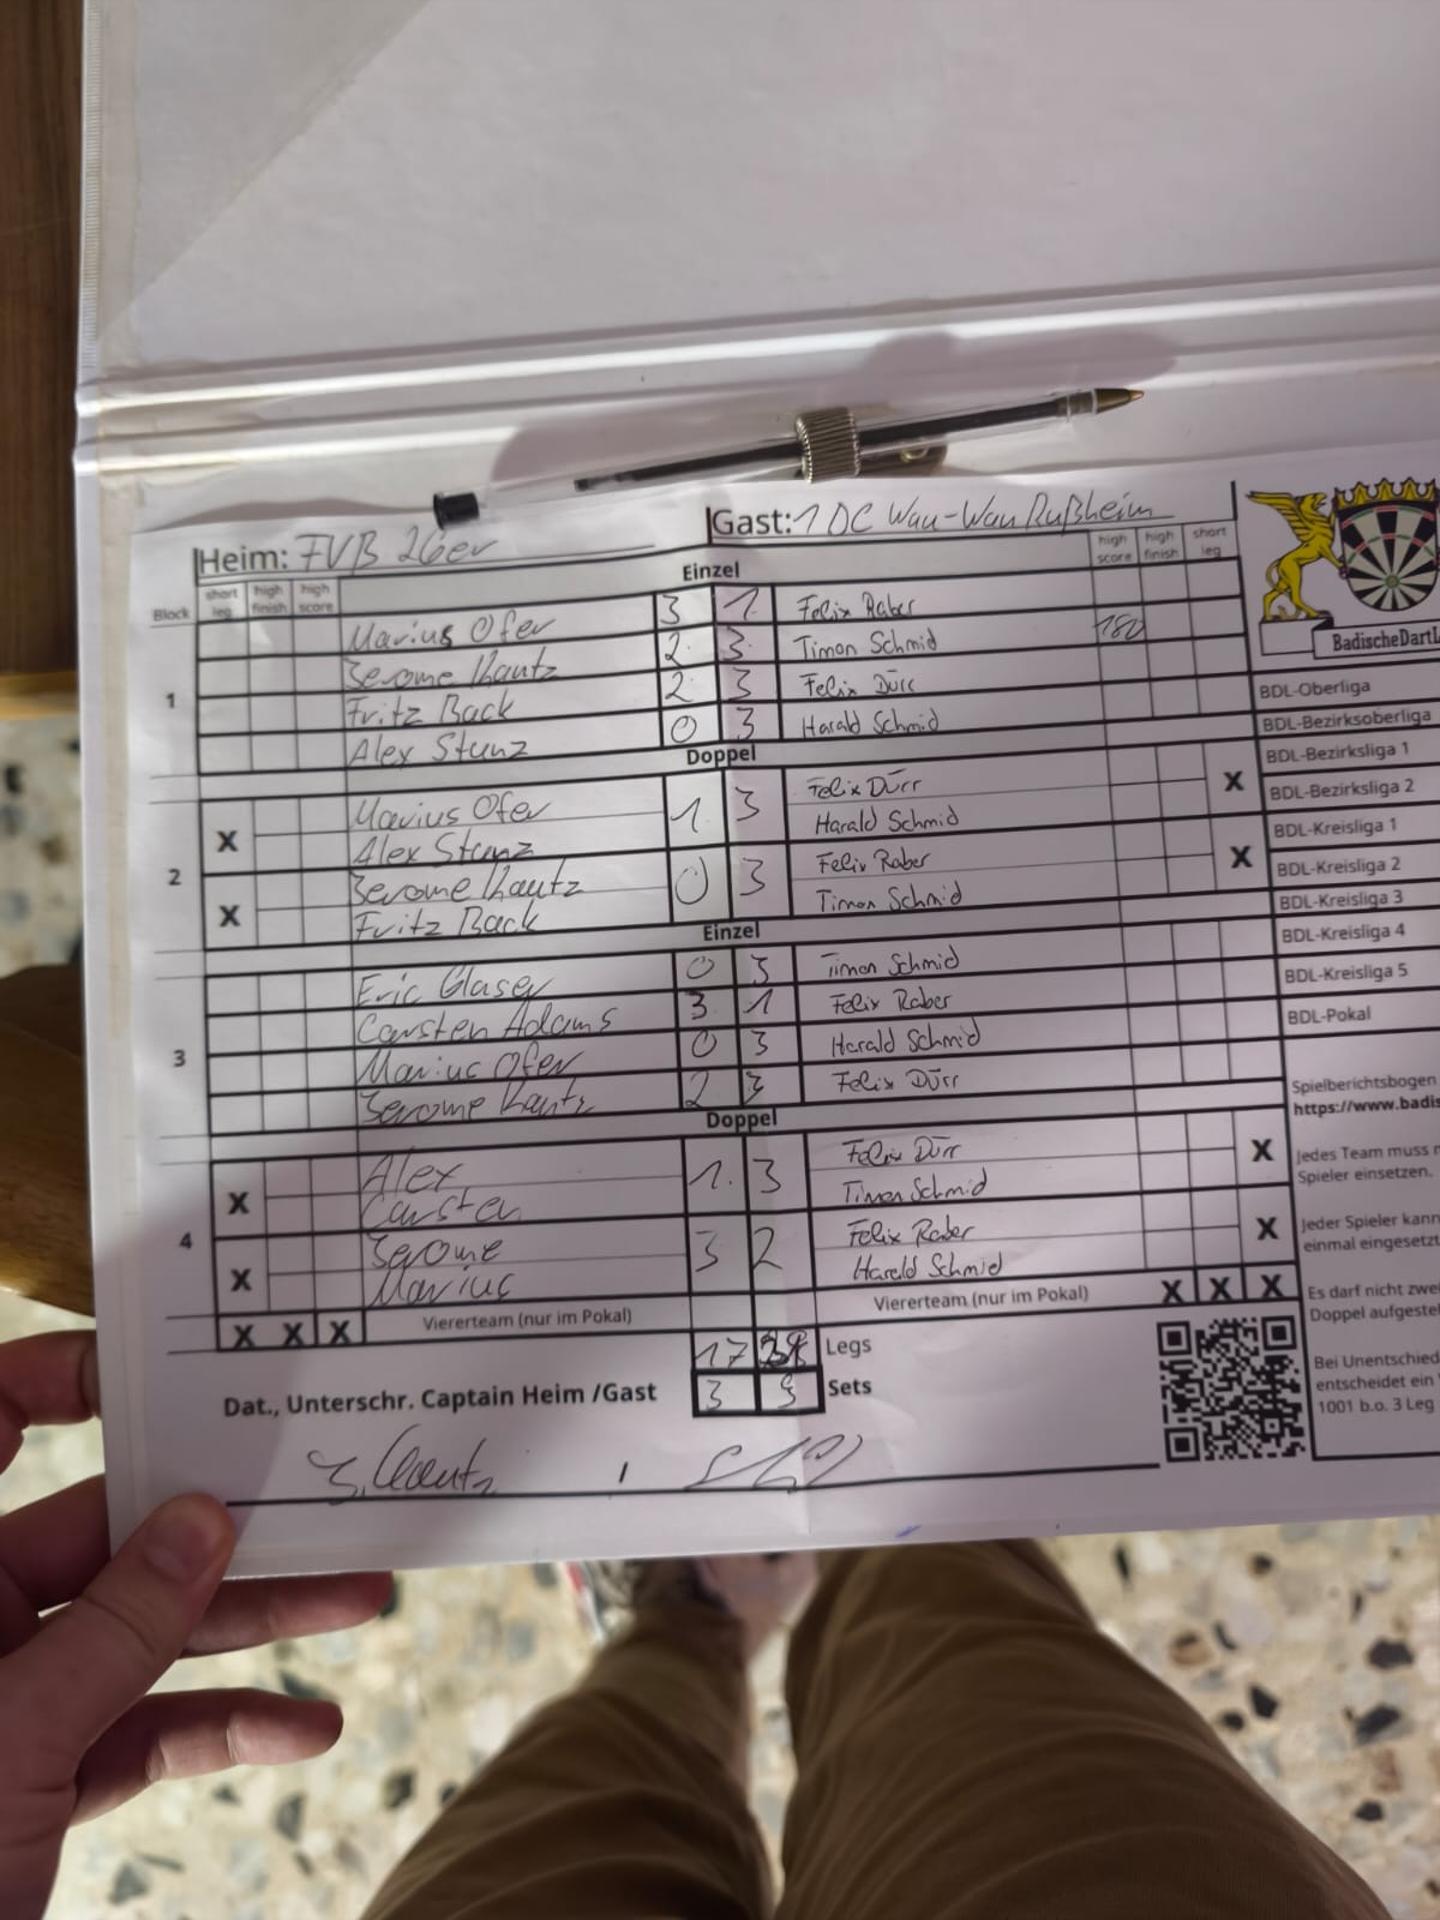 Heim: FVB 26er
Gast: 1 DC Wau-Wau Rußheim
Block short leg high finish high score Einzel high score high finish short leg
1
Marius Ofer 3 1 Felix Raber
Jerome Kautz 2 3 Timon Schmid 180
Fritz Back 2 3 Felix Dürr
Alex Stunz 0 3 Harald Schmid
Doppel
2
X Marius Ofer 1 3 Felix Dürr X
Alex Stunz Harald Schmid
X Jerome Kautz 0 3 Felix Raber X
Fritz Back Timon Schmid
Einzel
3
Eric Glaser 0 3 Timon Schmid
Carsten Adams 3 1 Felix Raber
Marius Ofer 0 3 Harald Schmid
Jerome Kautz 2 3 Felix Dürr
Doppel
4
X Alex 1 3 Felix Dürr X
Carsten Timon Schmid
X Jerome 3 2 Felix Raber X
Marius Harald Schmid
X X X Viererteam (nur im Pokal) Viererteam (nur im Pokal) X X X
17 Legs
3 Sets
Dat., Unterschr. Captain Heim /Gast
J. Kautz /
BadischeDartL
BDL-Oberliga
BDL-Bezirksoberliga
BDL-Bezirksliga 1
BDL-Bezirksliga 2
BDL-Kreisliga 1
BDL-Kreisliga 2
BDL-Kreisliga 3
BDL-Kreisliga 4
BDL-Kreisliga 5
BDL-Pokal
Spielberichtsbogen
https://www.badis
Jedes Team muss
Spieler einsetzen.
Jeder Spieler kann
einmal eingesetzt
Es darf nicht zwei
Doppel aufgestel
Bei Unentschied
entscheidet ein
1001 b.o. 3 Leg